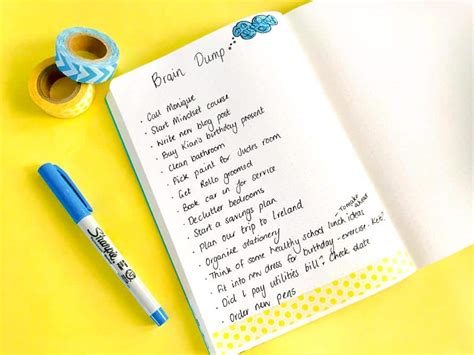 Brain Dump
• Call Monique
• Start Mindset course
• Write new blog post
• Buy Kian's birthday present
• Clean bathroom
• Pick paint for Judes room
• Get Rollo groomed
• Book car in for service
• Declutter bedrooms
• Start a savings plan
• Plan our trip to Ireland
• Organise stationery
• Think of some healthy school lunch ideas
To make ahead
• Fit into new dress for birthday - exercise, Keto?
• Did I pay utilities bill? Check date
• Order new pens
Sharpie